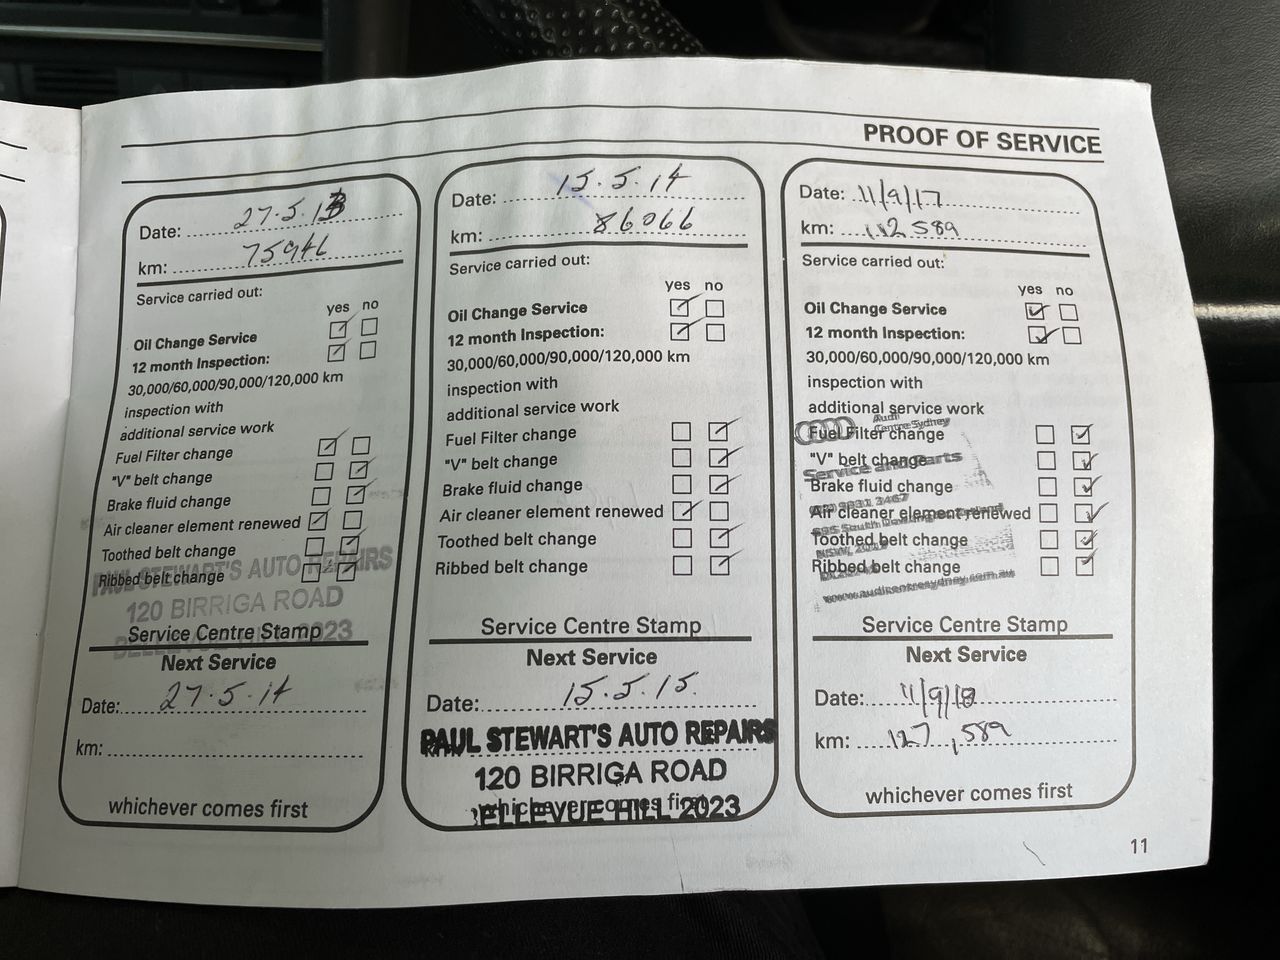 PROOF OF SERVICE
Date: 27.5.13
km: 75946
Service carried out:
yes no
Oil Change Service
12 month Inspection:
30,000/60,000/90,000/120,000 km
inspection with
additional service work
Fuel Filter change
"V" belt change
Brake fluid change
Air cleaner element renewed
Toothed belt change
Ribbed belt change
PAUL STEWART'S AUTO REPAIRS
120 BIRRIGA ROAD
BELLEVUE HILL 2023
Service Centre Stamp
Next Service
Date: 27.5.14
km:
whichever comes first
Date: 15.5.14
km: 86066
Service carried out:
yes no
Oil Change Service
12 month Inspection:
30,000/60,000/90,000/120,000 km
inspection with
additional service work
Fuel Filter change
"V" belt change
Brake fluid change
Air cleaner element renewed
Toothed belt change
Ribbed belt change
Service Centre Stamp
Next Service
Date: 15.5.15.
km:
PAUL STEWART'S AUTO REPAIRS
120 BIRRIGA ROAD
whichever comes first
BELLEVUE HILL 2023
Date: 11/9/17
km: 112589
Service carried out:
yes no
Oil Change Service
12 month Inspection:
30,000/60,000/90,000/120,000 km
inspection with
additional service work
Audi
Centre Sydney
Fuel Filter change
"V" belt change
Service and Parts
Brake fluid change
Air cleaner element renewed
Toothed belt change
Ribbed belt change
www.audicentresydney.com.au
Service Centre Stamp
Next Service
Date: 11/9/18
km: 127,589
whichever comes first
11